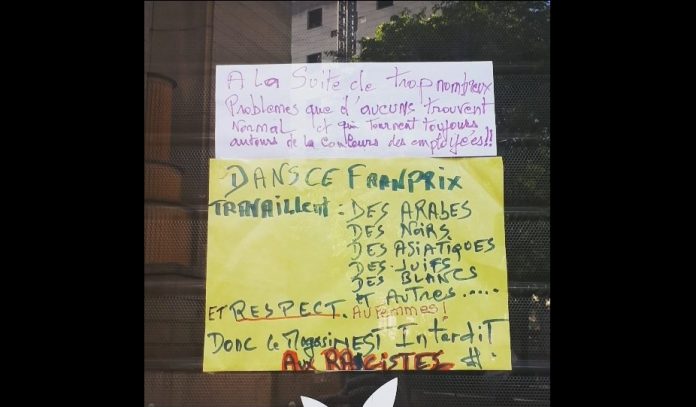 A La Suite de trop nombreux
Problemes que d'aucuns trouvent
Normal et qui tournent toujours
autours de la couleurs des employées!!
DANS CE FRANPRIX
TRAVAILLENT : DES ARABES
DES NOIRS
DES ASIATIQUES
DES JUIFS
DES BLANCS
ET AUTRES.....
ET RESPECT. AU FEMMES!
DONC Le Magasin EST Interdit
AUX RACISTES